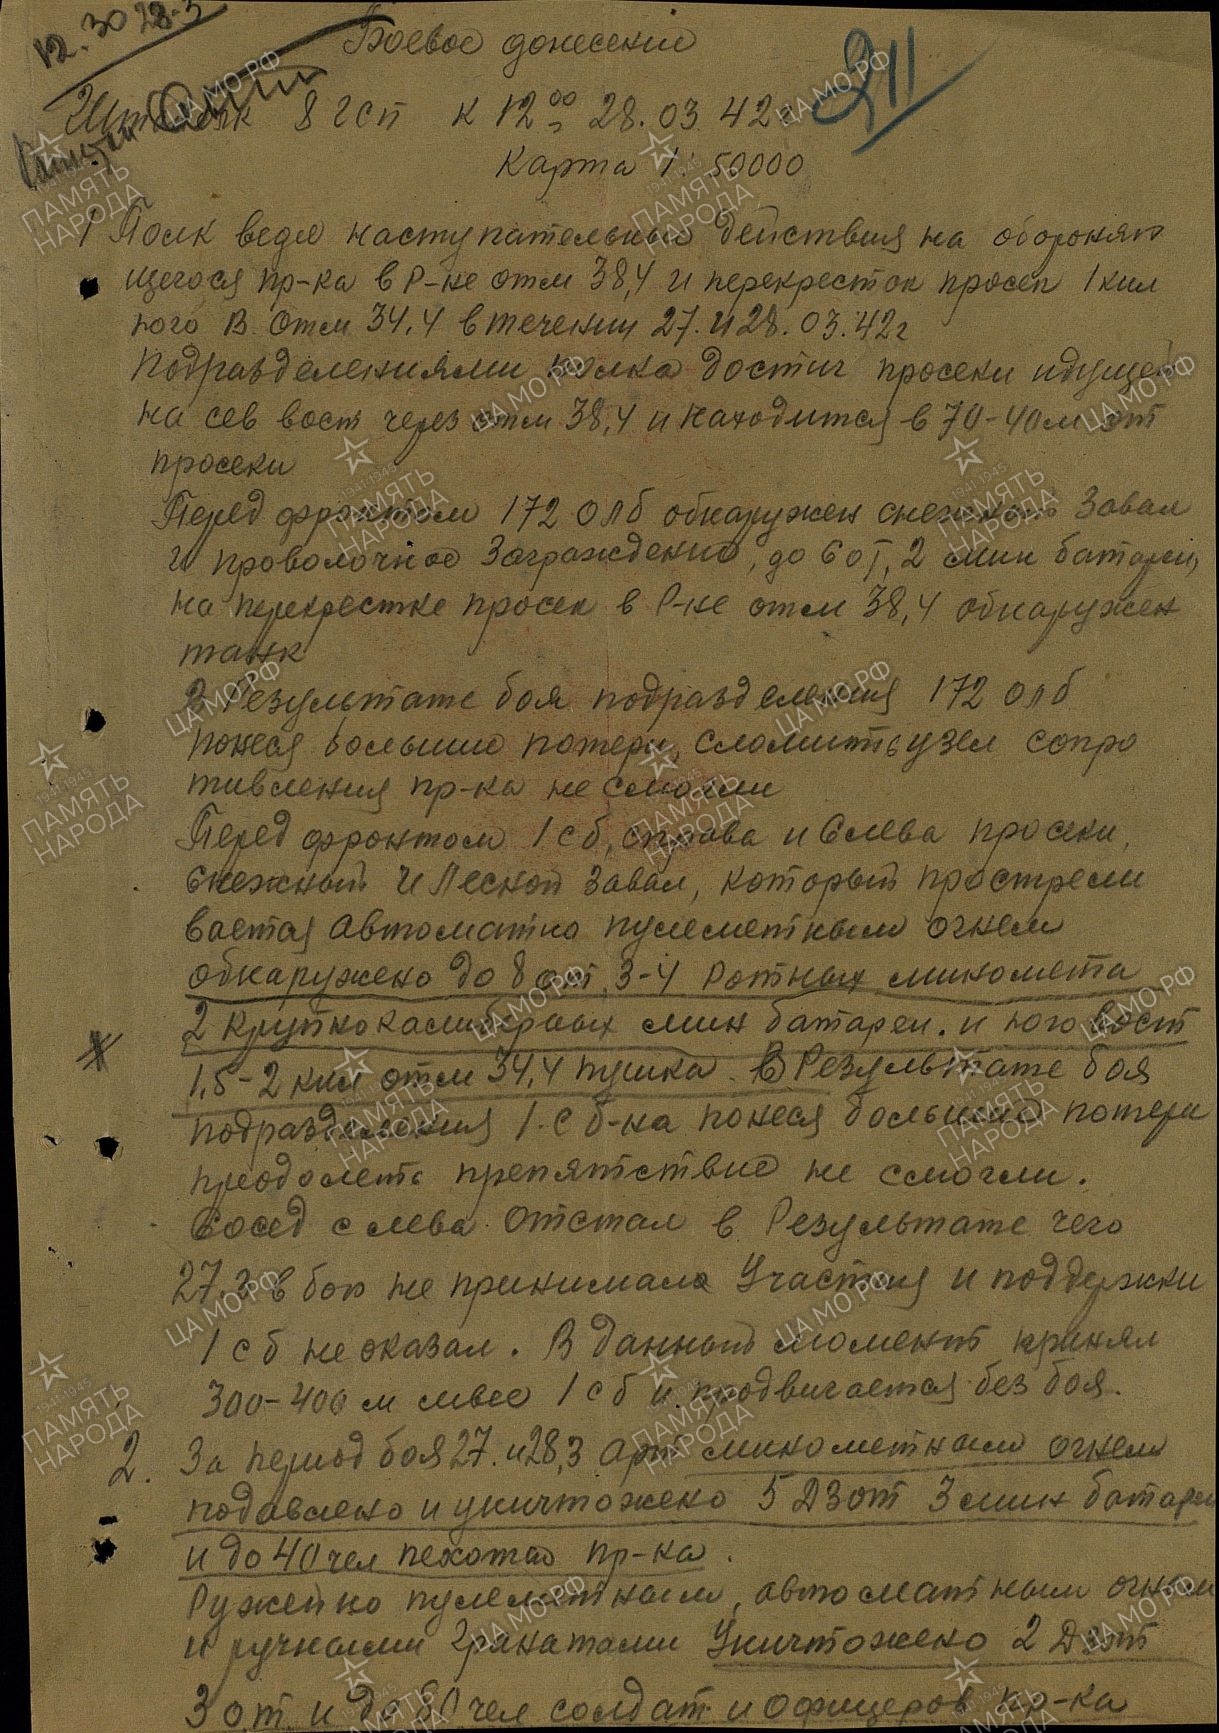 12.30 28-3
Боевое донесение
211
8 гсп к 12 00 28.03.42г
Карта 1 50000
1 Полк ведя наступательные действия на обороняю
щегося пр-ка в Р-не отм 38,4 и перекресток просек 1 килм
юго В. отм 34.4 в течении 27. и 28.03.42г
Подразделениями полка достиг просеки идущей
на сев вост через отм 38,4 и находится в 70-40м от
просеки
Перед фронтом 172 олб обнаружен снежный завал
и проволочное заграждение, до 6 от, 2 мин батареи,
на перекрестке просек в Р-не отм 38,4 обнаружен
танк
В Результате боя подразделения 172 олб
понеся большие потери, сломить узел сопро
тивления пр-ка не смогли
Перед фронтом 1 сб, справа и слева просеки,
снежный и Лесной завал, который прострели
вается автоматно пулеметным огнем
обнаружено до 8 от, 3-4 Ротных миномета
2 крупнокалиберных мин батареи. и юго вост
1,5-2 килм отм 34,4 пушка. В Результате боя
подразделения 1 сб-на понеся большие потери
преодолеть препятствие не смогли.
Сосед слева отстал в Результате чего
27.3 в бою не принимала участия и поддержки
1 сб не оказал. В данный момент принял
300-400 м левее 1 сб и продвигается без боя.
2. За период боя 27. и 28.3 арт минометным огнем
подавлено и уничтожено 5 Дзот 3 мин батареи
и до 40 чел пехоты пр-ка.
Ружейно пулеметным, автоматным огнем
и ручными гранатами Уничтожено 2 Дзот
3 от и до 60 чел солдат и офицеров пр-ка
ПАМЯТЬ НАРОДА
1941-1945
ЦА МО РФ